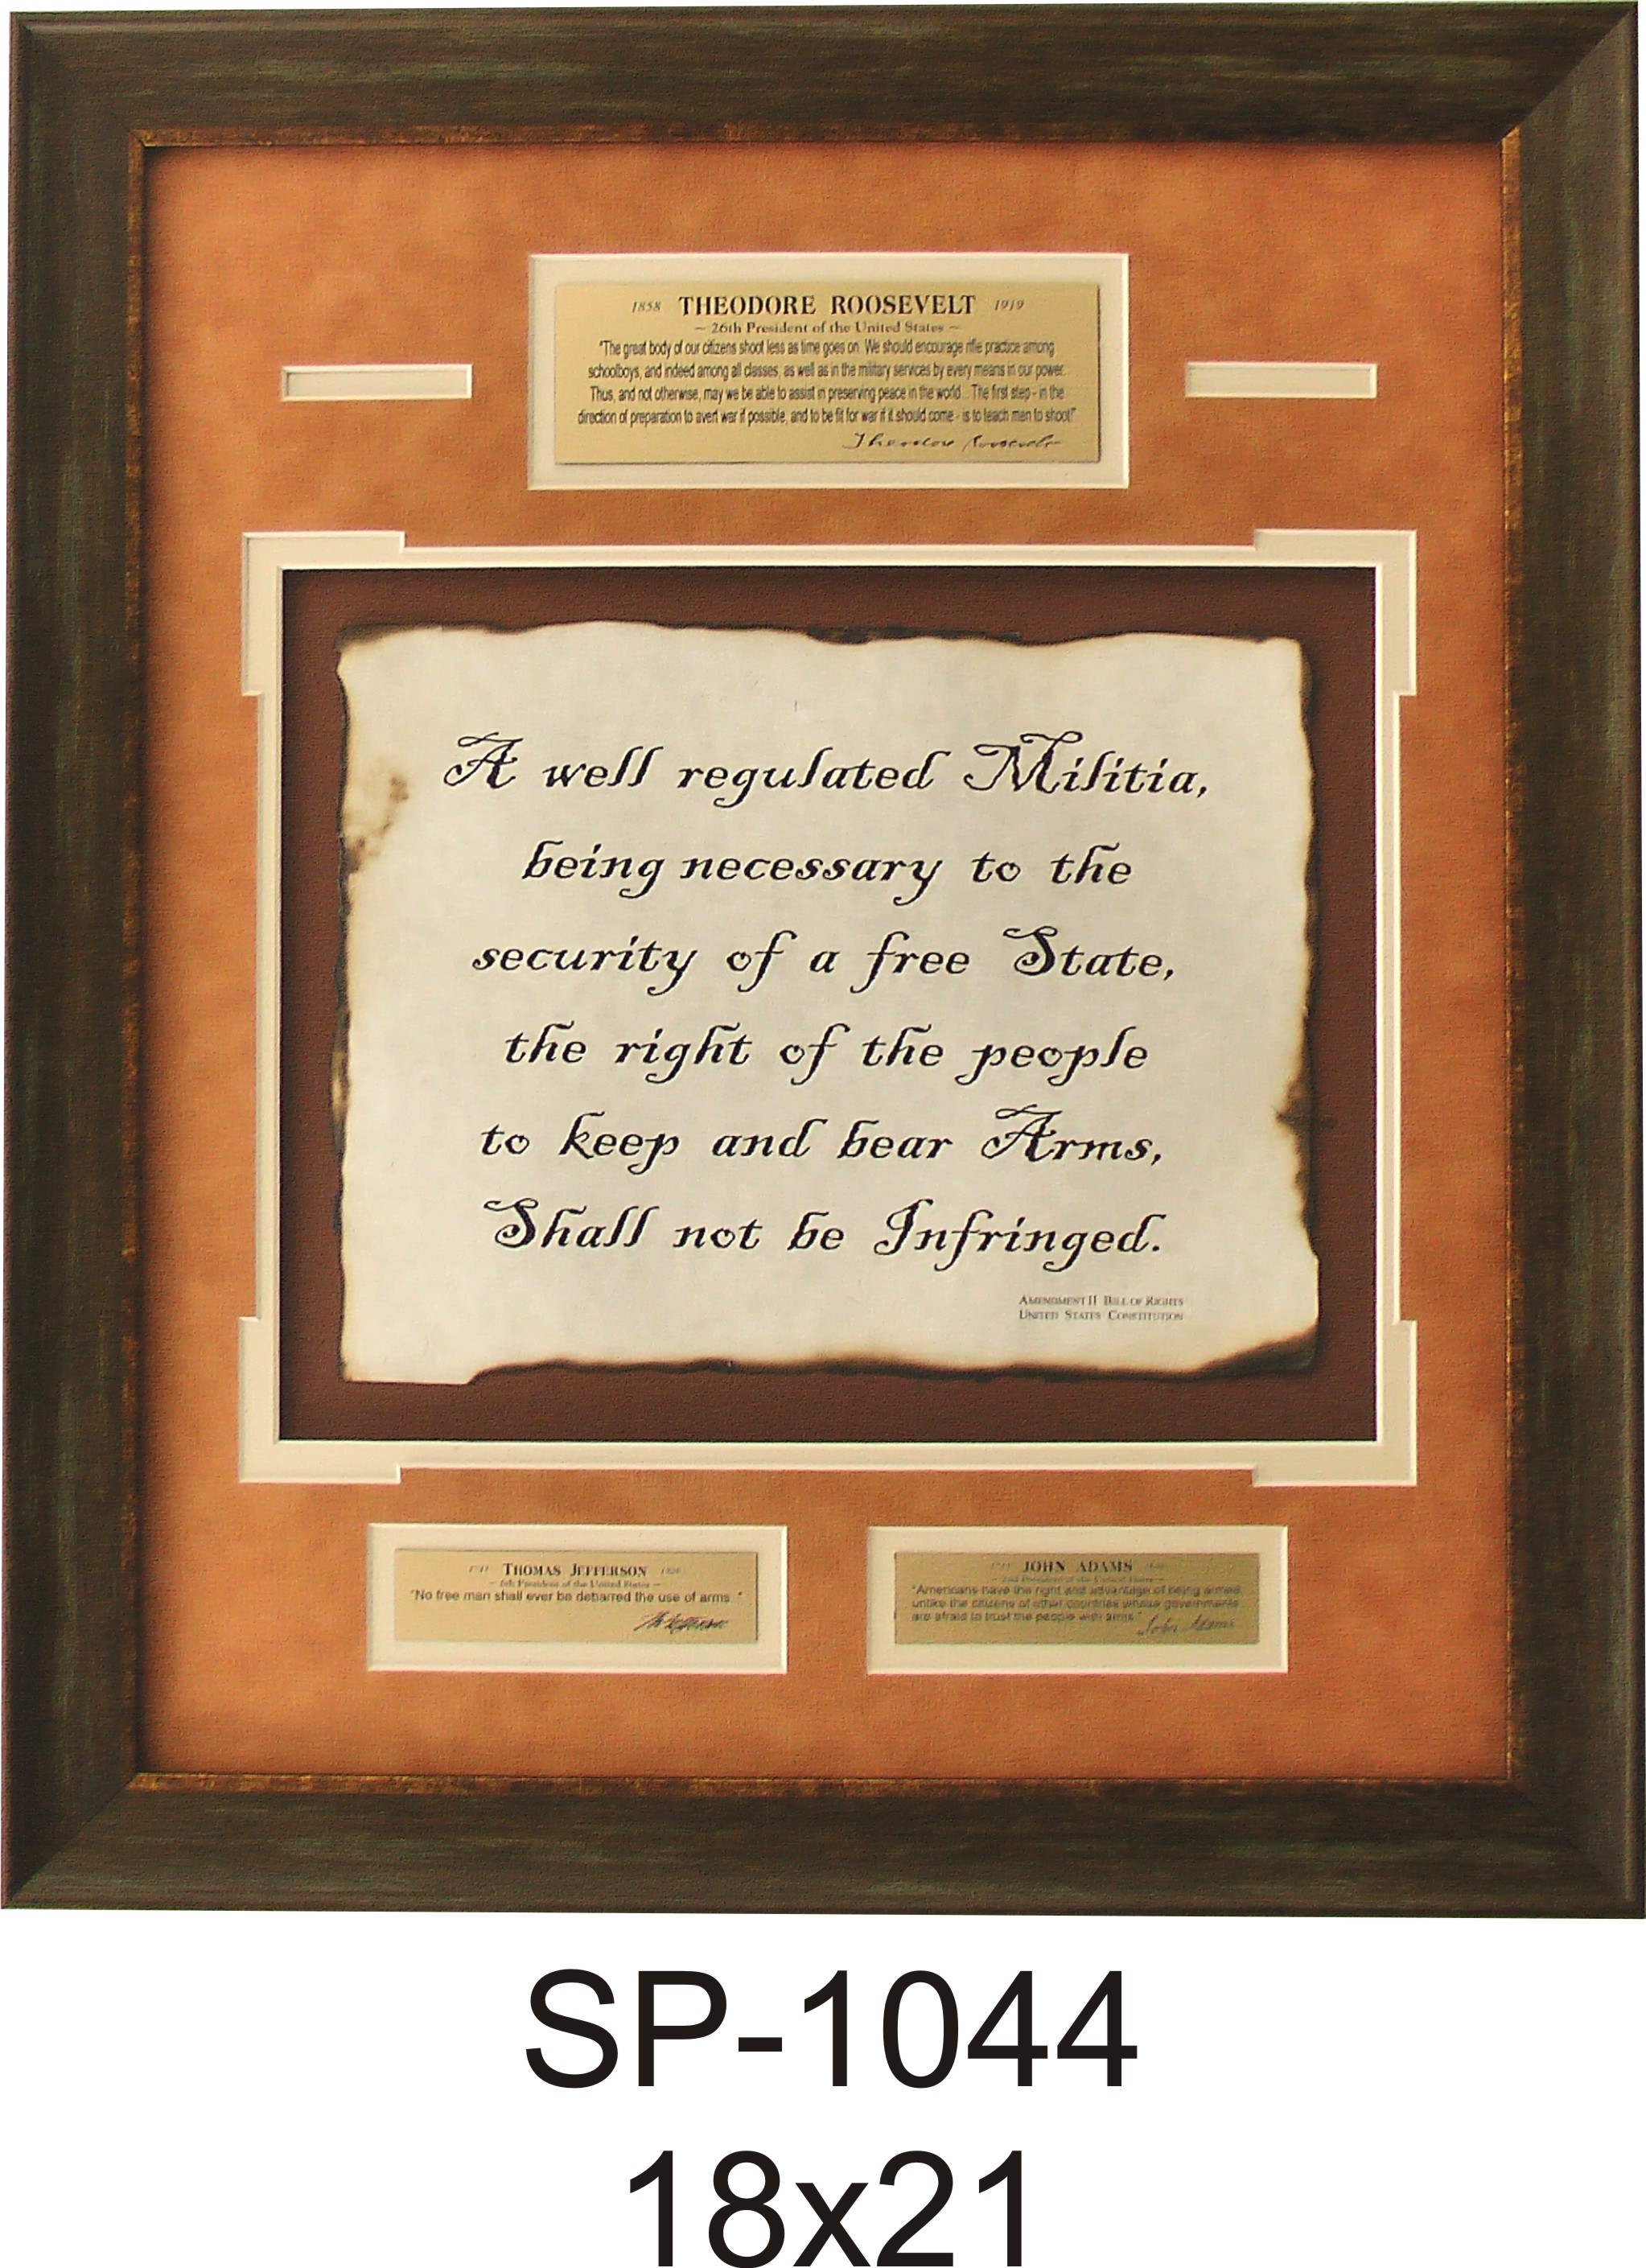 1858 THEODORE ROOSEVELT 1919
~ 26th President of the United States ~
"The great body of our citizens shoot less as time goes on. We should encourage rifle practice among
schoolboys, and indeed among all classes, as well as in the military services by every means in our power.
Thus, and not otherwise, may we be able to assist in preserving peace in the world... The first step - in the
direction of preparation to avert war if possible, and to be fit for war if it should come - is to teach men to shoot!"
Theodore Roosevelt
A well regulated Militia,
being necessary to the
security of a free State,
the right of the people
to keep and bear Arms,
Shall not be Infringed.
AMENDMENT II BILL OF RIGHTS
UNITED STATES CONSTITUTION
THOMAS JEFFERSON
President of the United States ~
"No free man shall ever be debarred the use of arms."
Th Jefferson
JOHN ADAMS
President of the United States
"Americans have the right and advantage of being armed,
unlike the citizens of other countries whose governments
are afraid to trust the people with arms."
John Adams
SP-1044
18x21